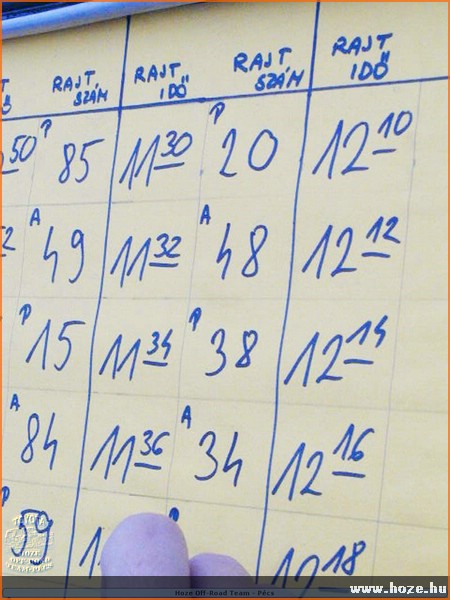 RAJT SZÁM RAJT IDŐ RAJT SZÁM RAJT IDŐ
50 P 85 11 30 P 20 12 10
A 49 11 32 A 48 12 12
P 15 11 34 P 38 12 14
A 84 11 36 A 34 12 16
P 59 12 18
TOYOTA
HOZE
OFF-ROAD
TEAM-PÉCS
Hoze Off-Road Team - Pécs
www.hoze.hu